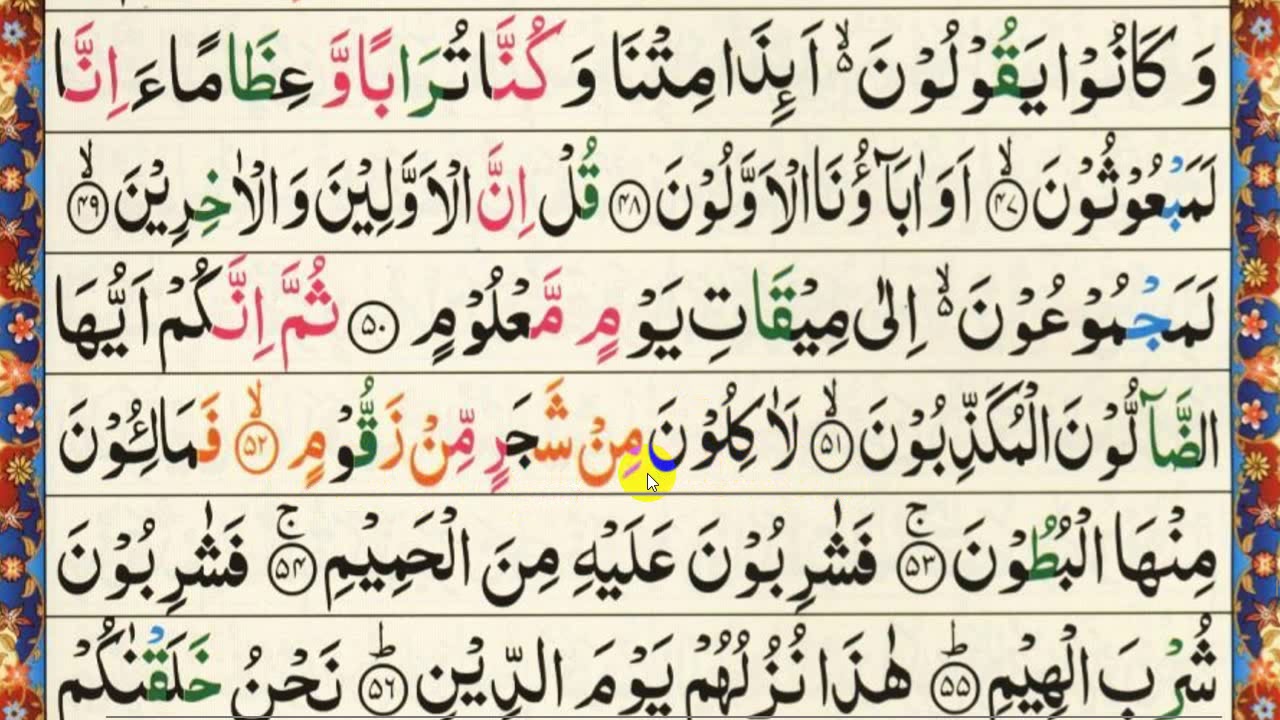 وَ كَانُوْا يَقُوْلُوْنَ ۙ۬ اَىِٕذَا مِتْنَا وَ كُنَّا تُرَابًا وَّ عِظَامًا ءَاِنَّا
لَمَبْعُوْثُوْنَ ۙ۝۴۷ اَوَ اٰبَآؤُنَا الْاَوَّلُوْنَ ۝۴۸ قُلْ اِنَّ الْاَوَّلِيْنَ وَ الْاٰخِرِيْنَ ۙ۝۴۹
لَمَجْمُوْعُوْنَ ۙ۬ اِلٰى مِيْقَاتِ يَوْمٍ مَّعْلُوْمٍ ۝۵۰ ثُمَّ اِنَّكُمْ اَيُّهَا
الضَّآلُّوْنَ الْمُكَذِّبُوْنَ ۙ۝۵۱ لَاٰكِلُوْنَ مِنْ شَجَرٍ مِّنْ زَقُّوْمٍ ۙ۝۵۲ فَمَالِـُٔوْنَ
مِنْهَا الْبُطُوْنَ ۚ۝۵۳ فَشٰرِبُوْنَ عَلَيْهِ مِنَ الْحَمِيْمِ ۚ۝۵۴ فَشٰرِبُوْنَ
شُرْبَ الْهِيْمِ ؕ۝۵۵ هٰذَا نُزُلُهُمْ يَوْمَ الدِّيْنِ ؕ۝۵۶ نَحْنُ خَلَقْنٰكُمْ